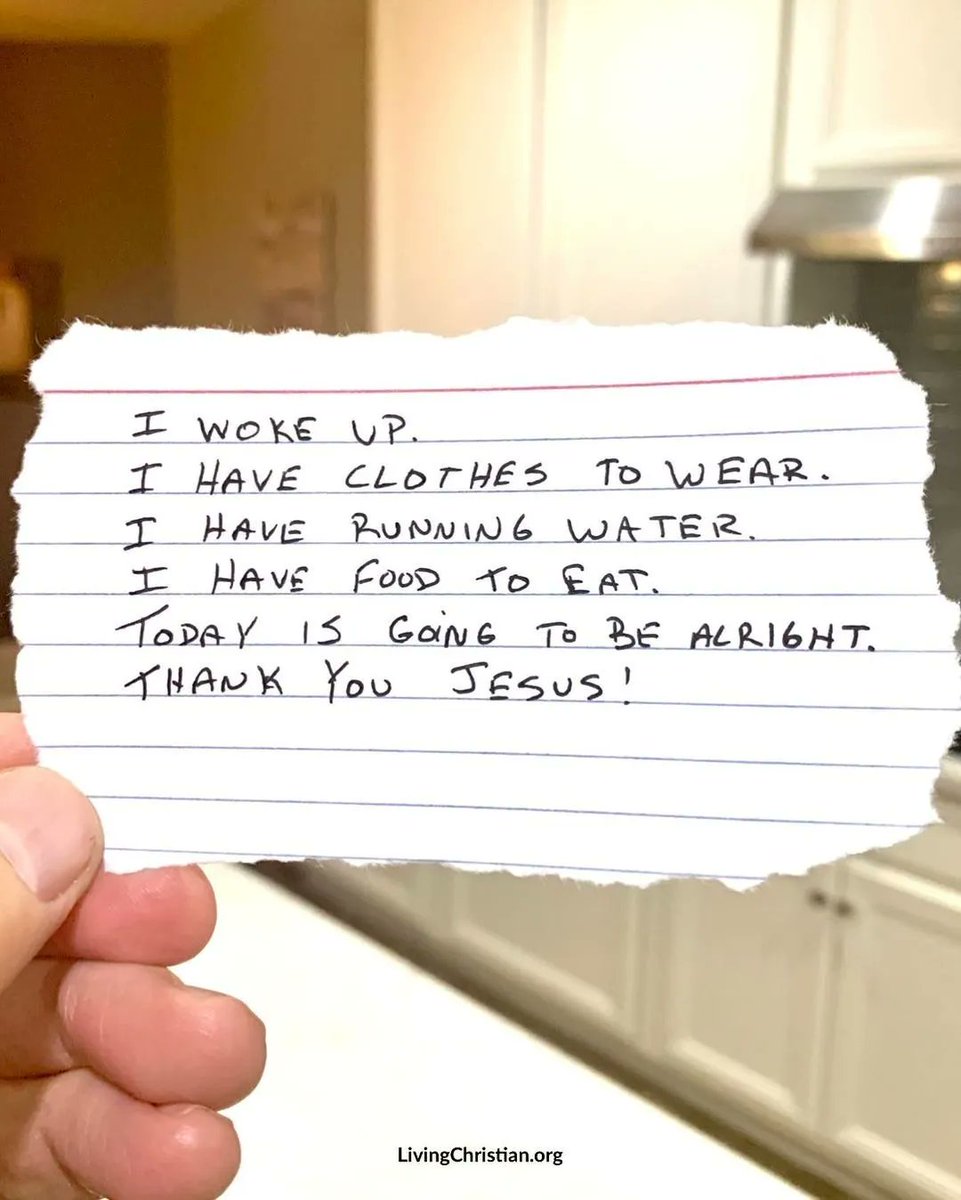 I WOKE UP.
I HAVE CLOTHES TO WEAR.
I HAVE RUNNING WATER.
I HAVE FOOD TO EAT.
TODAY IS GOING TO BE ALRIGHT.
THANK YOU JESUS!
LivingChristian.org